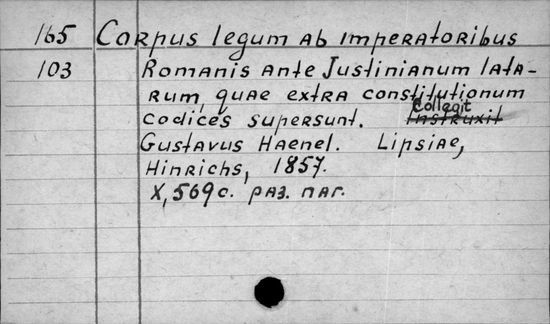 165 Corpus legum ab imperatoribus
103 Romanis ante Justinianum lata-
rum, quae extra constitutionum
Collegit
codices supersunt. Instruxit
Gustavus Haenel. Lipsiae,
Hinrichs, 1857.
X, 569 c. раз. паг.